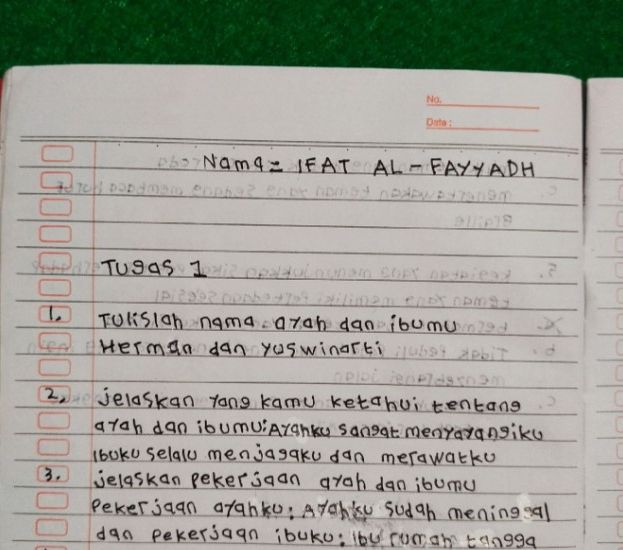 No.
Date:
Nama = IFAT AL - FAYYADH
TUgas 1
1. TUlislah nama ayah dan ibumu
Herman dan yuswinarti
2. jelaskan yang kamu ketahui tentang
ayah dan ibumu: Ayahku sangat menyayangiku
ibuku selalu menjagaku dan merawatku
3. jelaskan pekerjaan ayah dan ibumu
Pekerjaan ayahku: Ayahku sudah meninggal
dan pekerjaan ibuku: ibu rumah tangga